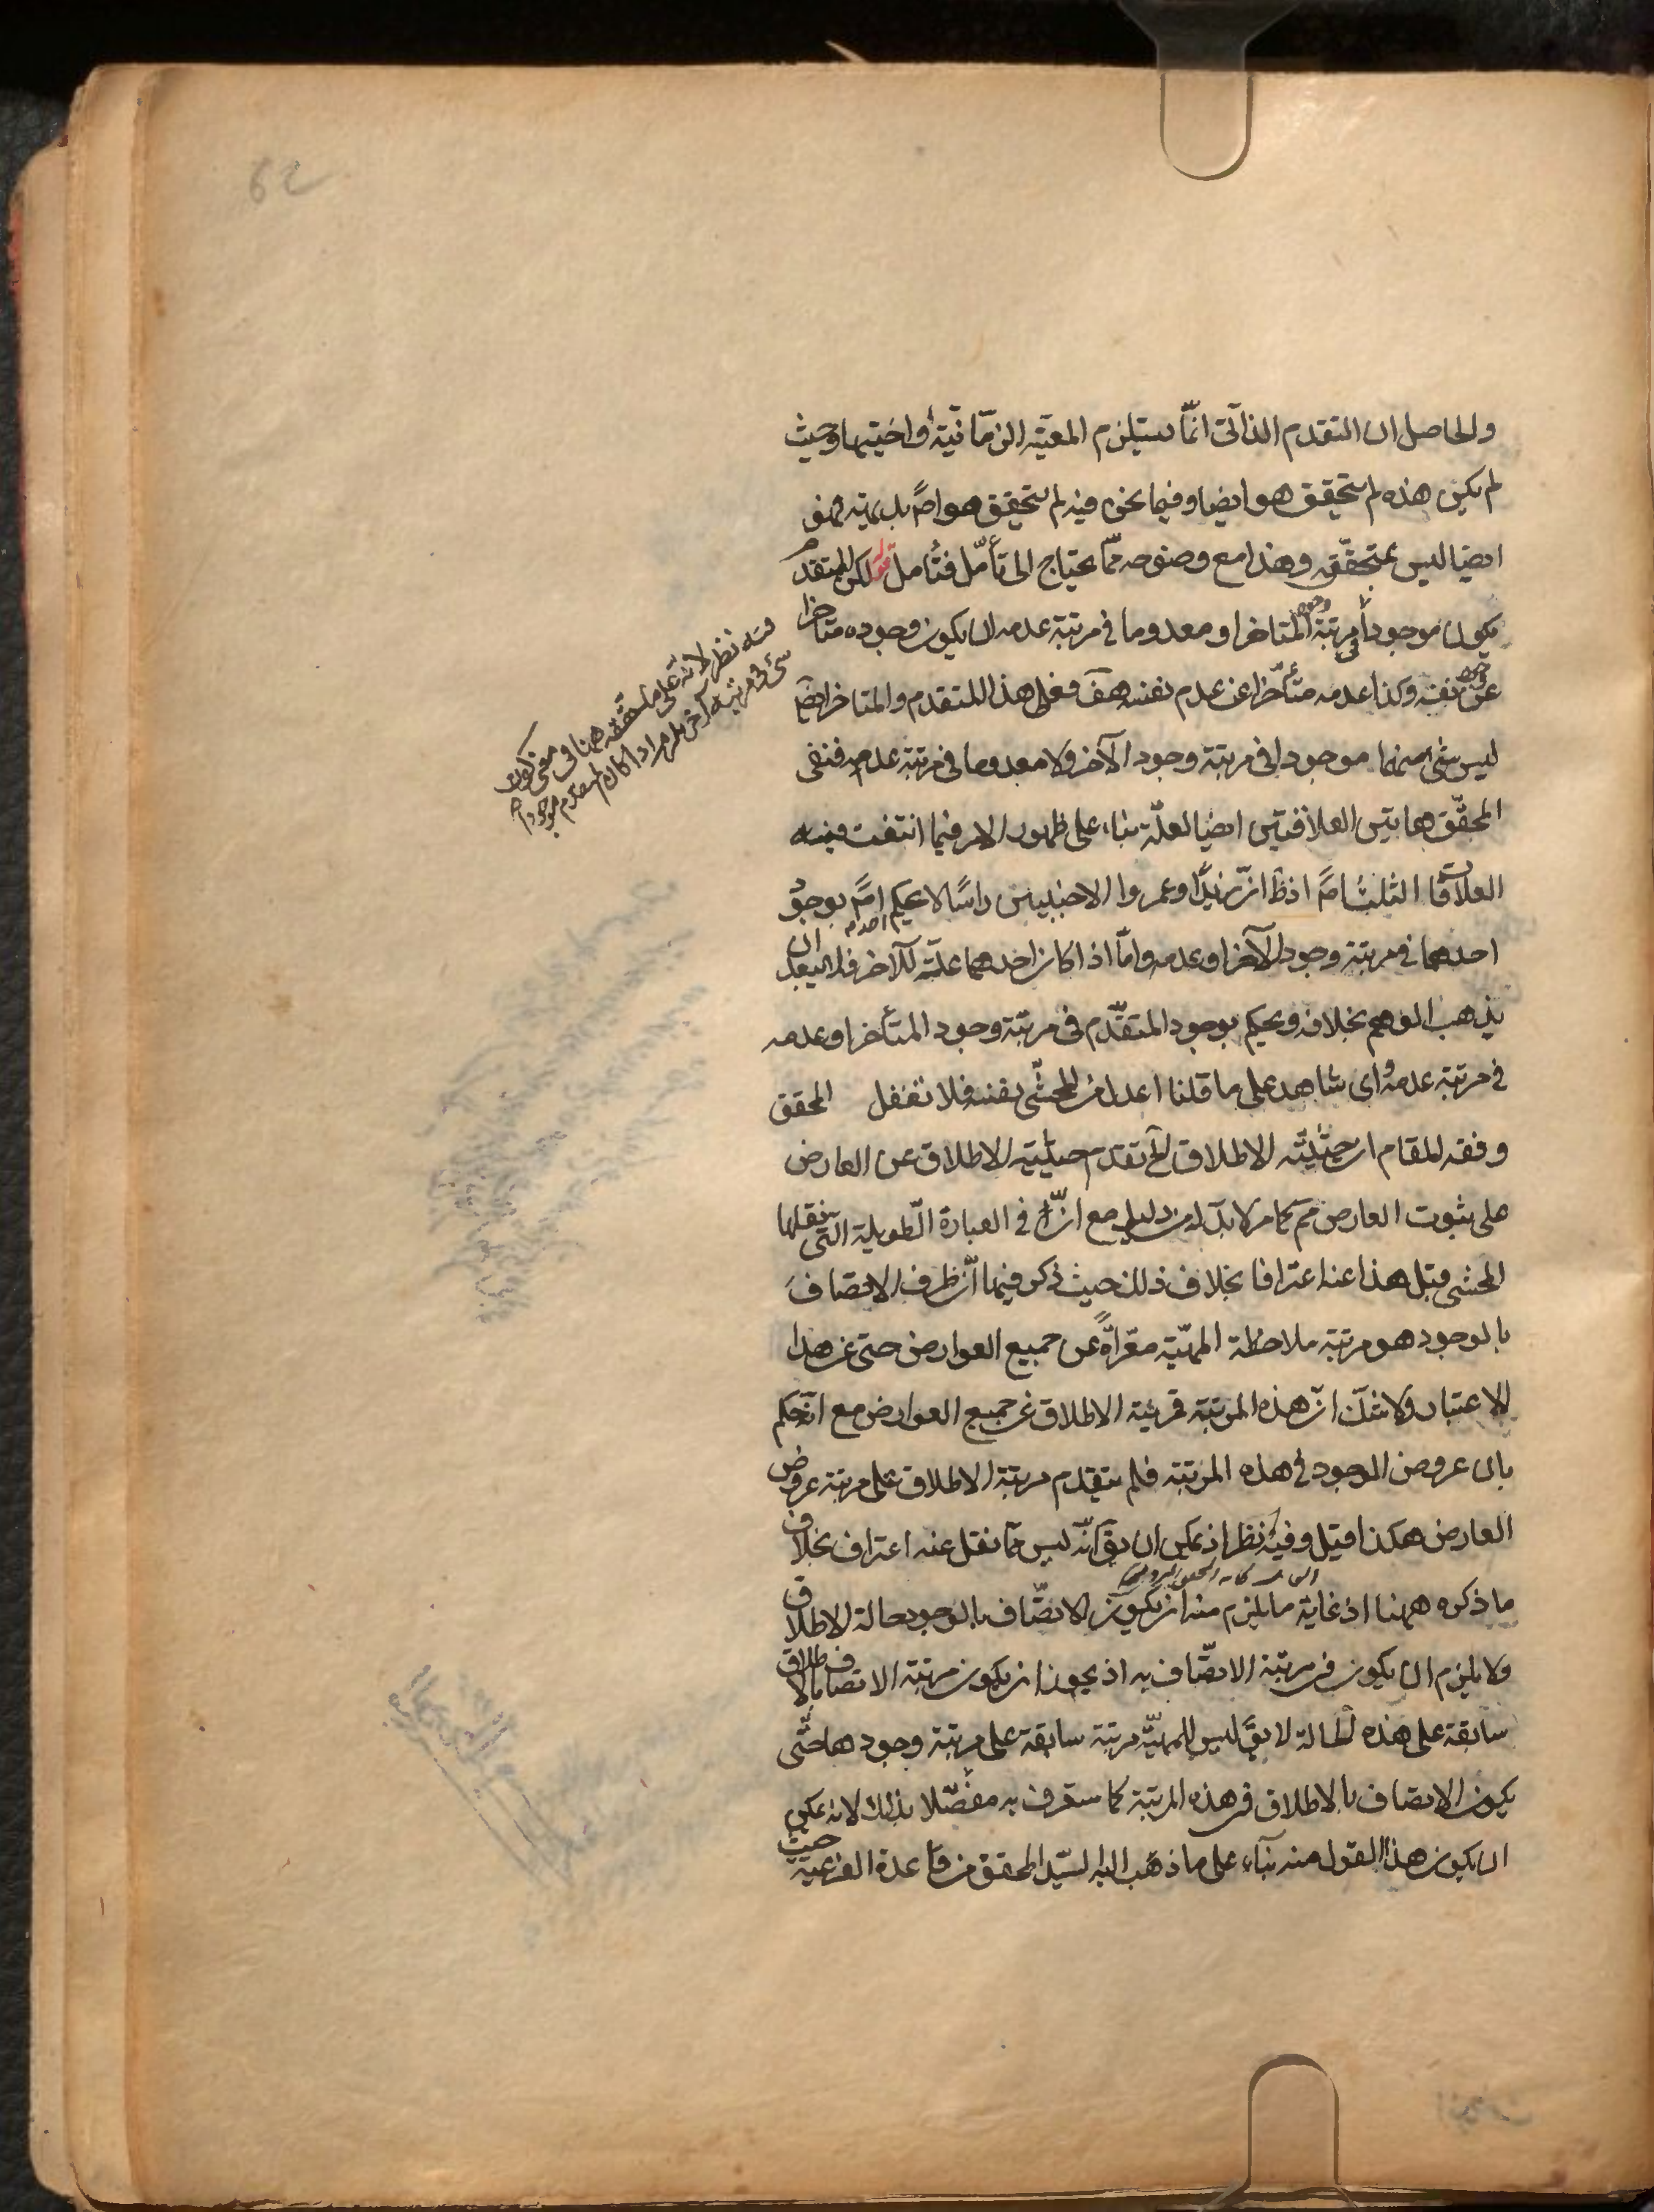 والحاصل ان التقدم الذاتی انّما یستلزم المعیّه الزمانیّة واختیها وحیث
لم یکن هذه لم یتحقق هو ایضا وفیما نحن فیه لم یتحقق هو اصلاً بل
ایضا لیس بمتحقّق وهذا مع وضوحه ممّا یحتاج الی تأمّل فتأمل قوله لکن المتقدم
یکون موجودا فی مرتبة وجود المتاخر او معدوما فی مرتبة عدمه ان یکون وجوده متاخرا
عن وجود نفسه وکذا عدمه متأخّرا عن عدم نفسه هف فعلی هذا المتقدم والمتاخر ایضا
لیس شیء منهما موجودا فی مرتبة وجود الآخر ولا معدوما فی مرتبة عدمه فنفی
المحقّق هاتین العلاقتین ایضا لعلّه بناء علی ظهور الامر فیما انتفت فیه
العلاقات الثلث اصلاً اذ ظ انّ زیدا وعمروا الاجنبیین راسًا لا یحکم احد اصلاً بوجود
احدهما فی مرتبة وجود الآخر او عدمه وامّا اذا کان احدهما علّة للآخر فلا یبعد ان
یذهب الوهم بخلافه ویحکم بوجود المتقدّم فی مرتبة وجود المتأخر او عدمه
فی مرتبة عدمه وای شاهد علی ما قلنا اعدل من المحشّی نفسه فلا تغفل المحقق
وفقه المقام ان حیثیّة الاطلاق الخ تقدم حیثیة الاطلاق عن العارض
علی ثبوت العارض مم کما مر لا بدّ له من دلیل مع انّ فی العبارة الطویلة التی نقلها
المحشی قبل هذا عنه اعترافا بخلاف ذلک حیث ذکر فیها انّ ظرف الاتصاف
بالوجود هو مرتبة ملاحظة المهیّة معّراة عن جمیع العوارض حتی عن هذا
الاعتبار ولا شک انّ هذه المرتبة مرتبة الاطلاق عن جمیع العوارض مع انه حکم
بان عروض الوجود فی هذه المرتبة فلم یتقدم مرتبة الاطلاق علی مرتبة عروض
العارض هکذا قیل وفیه نظر اذ یمکن ان یق انّه لیس ممّا نقل عنه اعتراف بخلاف
ما ذکره ههنا اذ غایة ما یلزم منه ان یکون الاتصّاف بالوجود حالة الاطلاق
ولا یلزم ان یکون فی مرتبة الاتصّاف به اذ یجوز ان یکون مرتبة الاتصاف بالاطلاق
سابقة علی هذه الحالة لا یق لیس للمهیّة مرتبة سابقة علی مرتبة وجودها حتّی
یکون الاتصاف بالاطلاق فی هذه المرتبة کما ستعرف به مفصّلا بذلک لانه یمکن
ان یکون هذا القول منه بناء علی ما ذهب الیه السیّد المحقق من قاعدة الفرعیة حیث
فیه نظر لانه علی ما حققه ههنا فی معنی کون
شیء فی مرتبة آخر یلزم اذا کان المتقدم موجودا